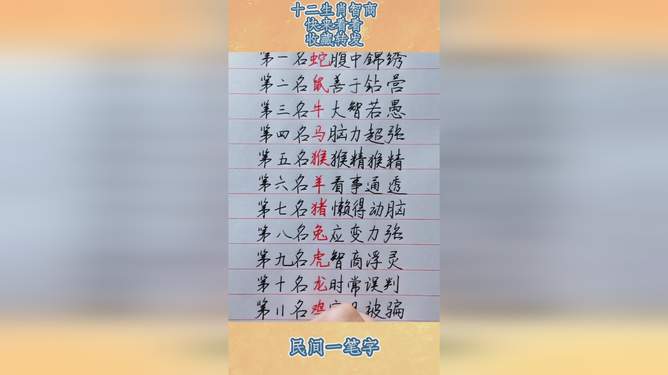 十二生肖智商
快来看看
收藏转发
第一名蛇腹中锦绣
第二名鼠善于钻营
第三名牛大智若愚
第四名马脑力超强
第五名猴猴精猴精
第六名羊看事通透
第七名猪懒得动脑
第八名兔应变力强
第九名虎智商浮灵
第十名龙时常误判
第11名鸡被骗
民间一笔字